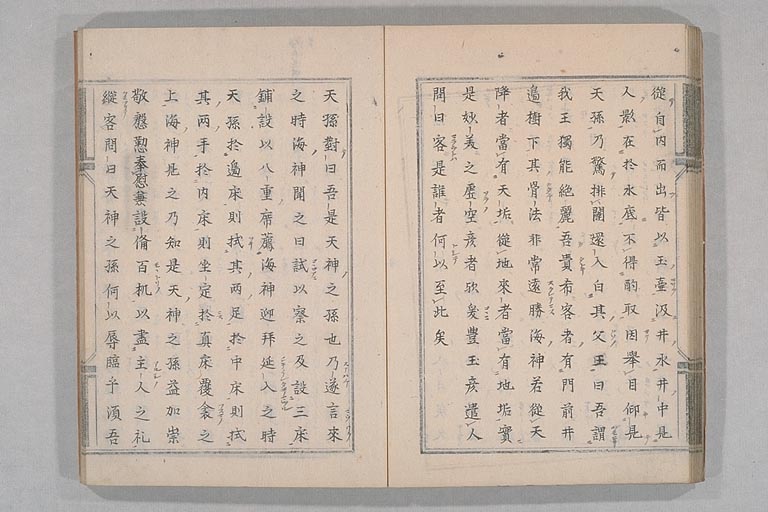 從自内而出皆以玉壼汲井水井中見
人影在於水底不得酌取因舉目仰見
天孫乃驚排闥還入白其父王曰吾謂
我王獨能絶麗吾貴希客者有門前井
邉樹下其骨法非常遠勝海神若從天
降者當有天垢從地來者當有地垢實
是妙美之虚空彦者欤爰豐玉彦遣人
問曰客是誰者何以至此矣
天孫對曰吾是天神之孫也乃遂言來
之時海神聞之曰試以察之及設三床
鋪設以八重席薦海神迎拜延入之時
天孫於邉床則拭其兩足於中床則拭
其兩手於内床則坐定於真床覆衾之
上海神見之乃知是天神之孫益加崇
敬慇懃奉慰兼設俻百机以盡主人之礼
縱客問曰天神之孫何以辱臨乎湏吾